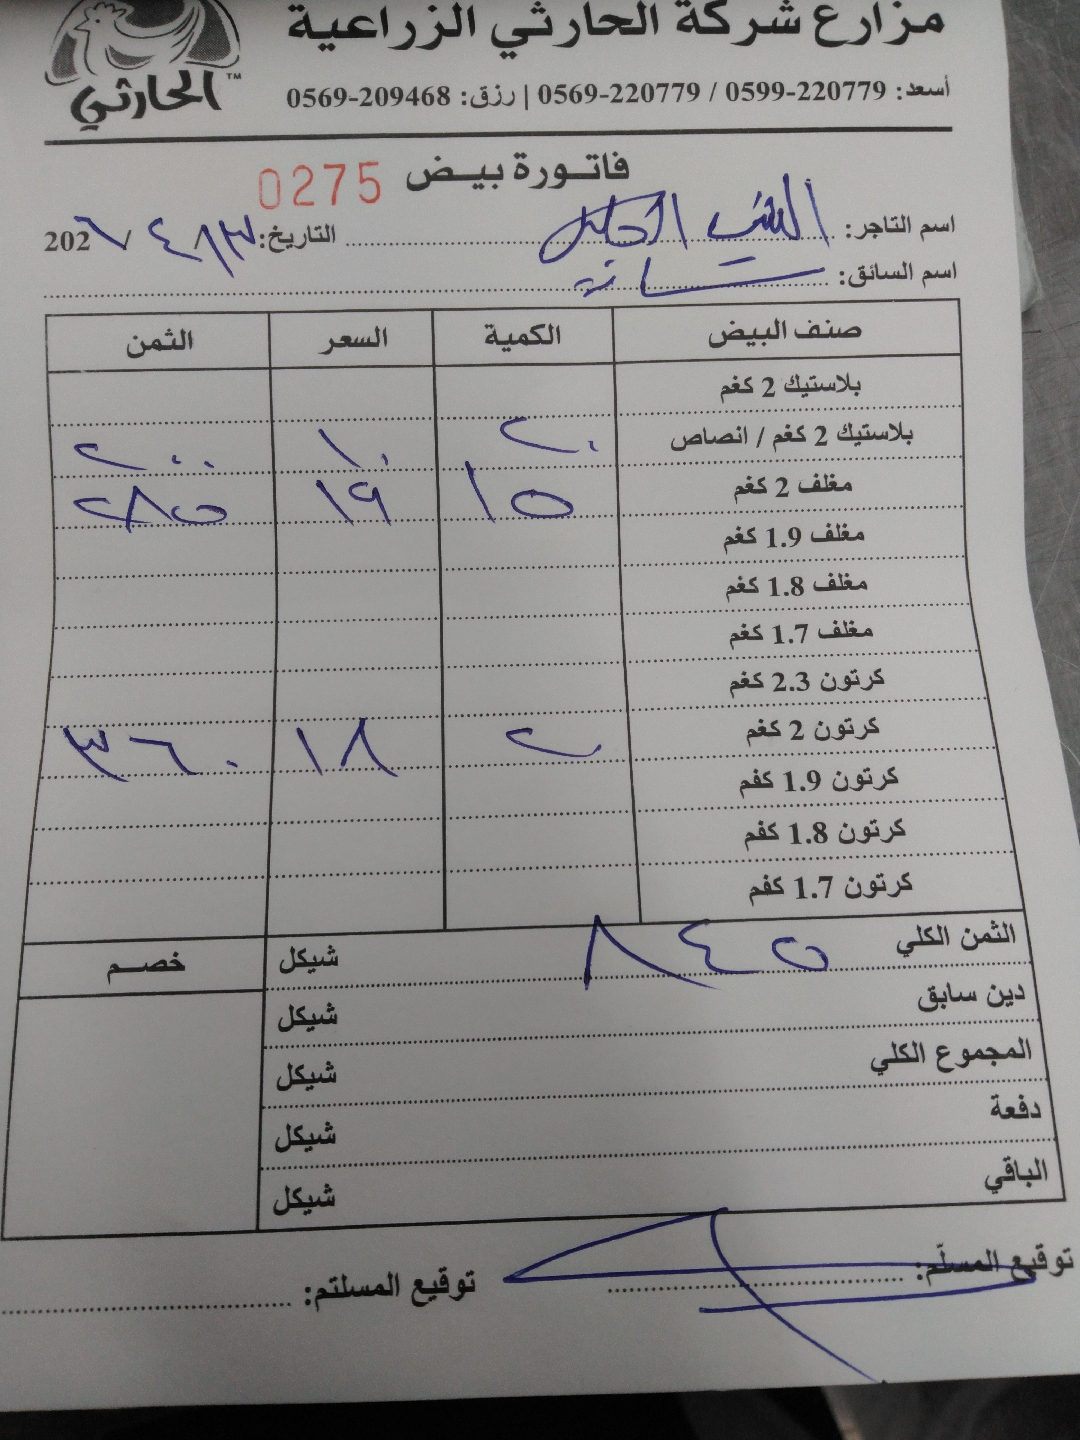 مزارع شركة الحارثي الزراعية
الحارثي™
أسعد: 0599-220779 / 0569-220779 | رزق: 0569-209468
فاتـورة بيـض 0275
اسم التاجر: التاريخ: ١٣ / ٤ / 202٦
اسم السائق:
صنف البيض الكمية السعر الثمن
بلاستيك 2 كغم
بلاستيك 2 كغم / انصاص ٢٠ ١٠ ٢٠٠
مغلف 2 كغم ١٥ ١٩ ٢٨٥
مغلف 1.9 كغم
مغلف 1.8 كغم
مغلف 1.7 كغم
كرتون 2.3 كغم
كرتون 2 كغم ٢٠ ١٨ ٣٦٠
كرتون 1.9 كفم
كرتون 1.8 كفم
كرتون 1.7 كفم
الثمن الكلي ٨٤٥ شيكل خصـم
دين سابق شيكل
المجموع الكلي شيكل
دفعة شيكل
الباقي شيكل
توقيع المسلّم: توقيع المسلتم: